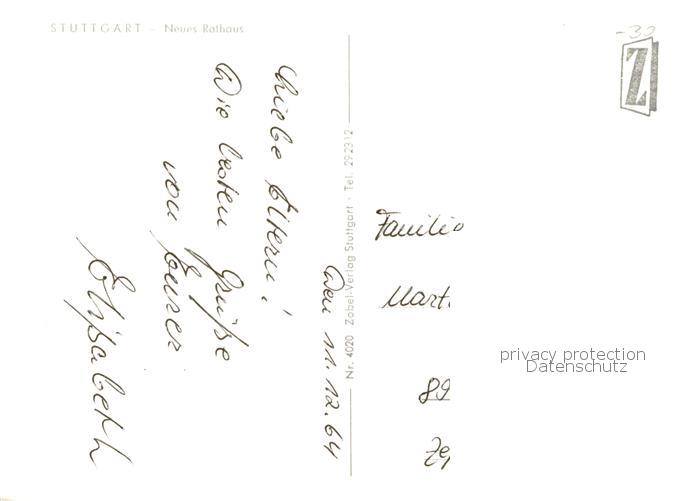 STUTTGART – Neues Rathaus
-30
Z
Den 11.12.64
Liebe Eltern!
Die besten Grüße
von Eurer
Elisabeth
Nr. 4020 Zobel-Verlag Stuttgart · Tel. 292312
Familie
Mart.
89
privacy protection
Datenschutz